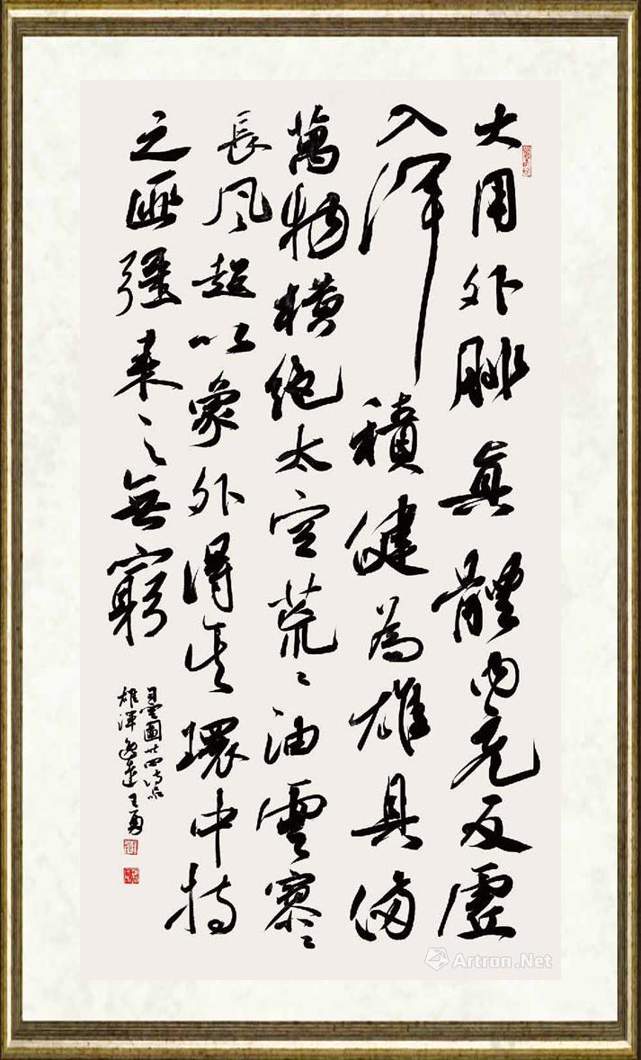 大用外腓真體內充反虛
入渾積健為雄具備
萬物橫絕太空荒〻油雲寥〻
長風超以象外得其環中持
之匪彊来之無窮
司空圖廿四詩品
雄渾 王勇
Artron.Net